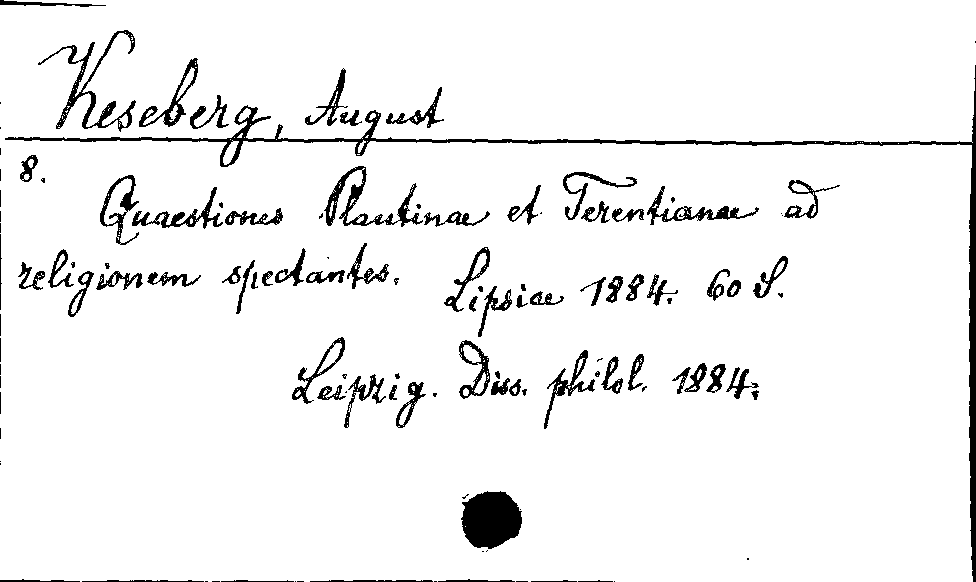 Keseberg, August
8.
Quaestiones Plautinae et Terentianae ad
religionem spectantes.
Lipsiae 1884. 60 S.
Leipzig. Diss. philol. 1884.